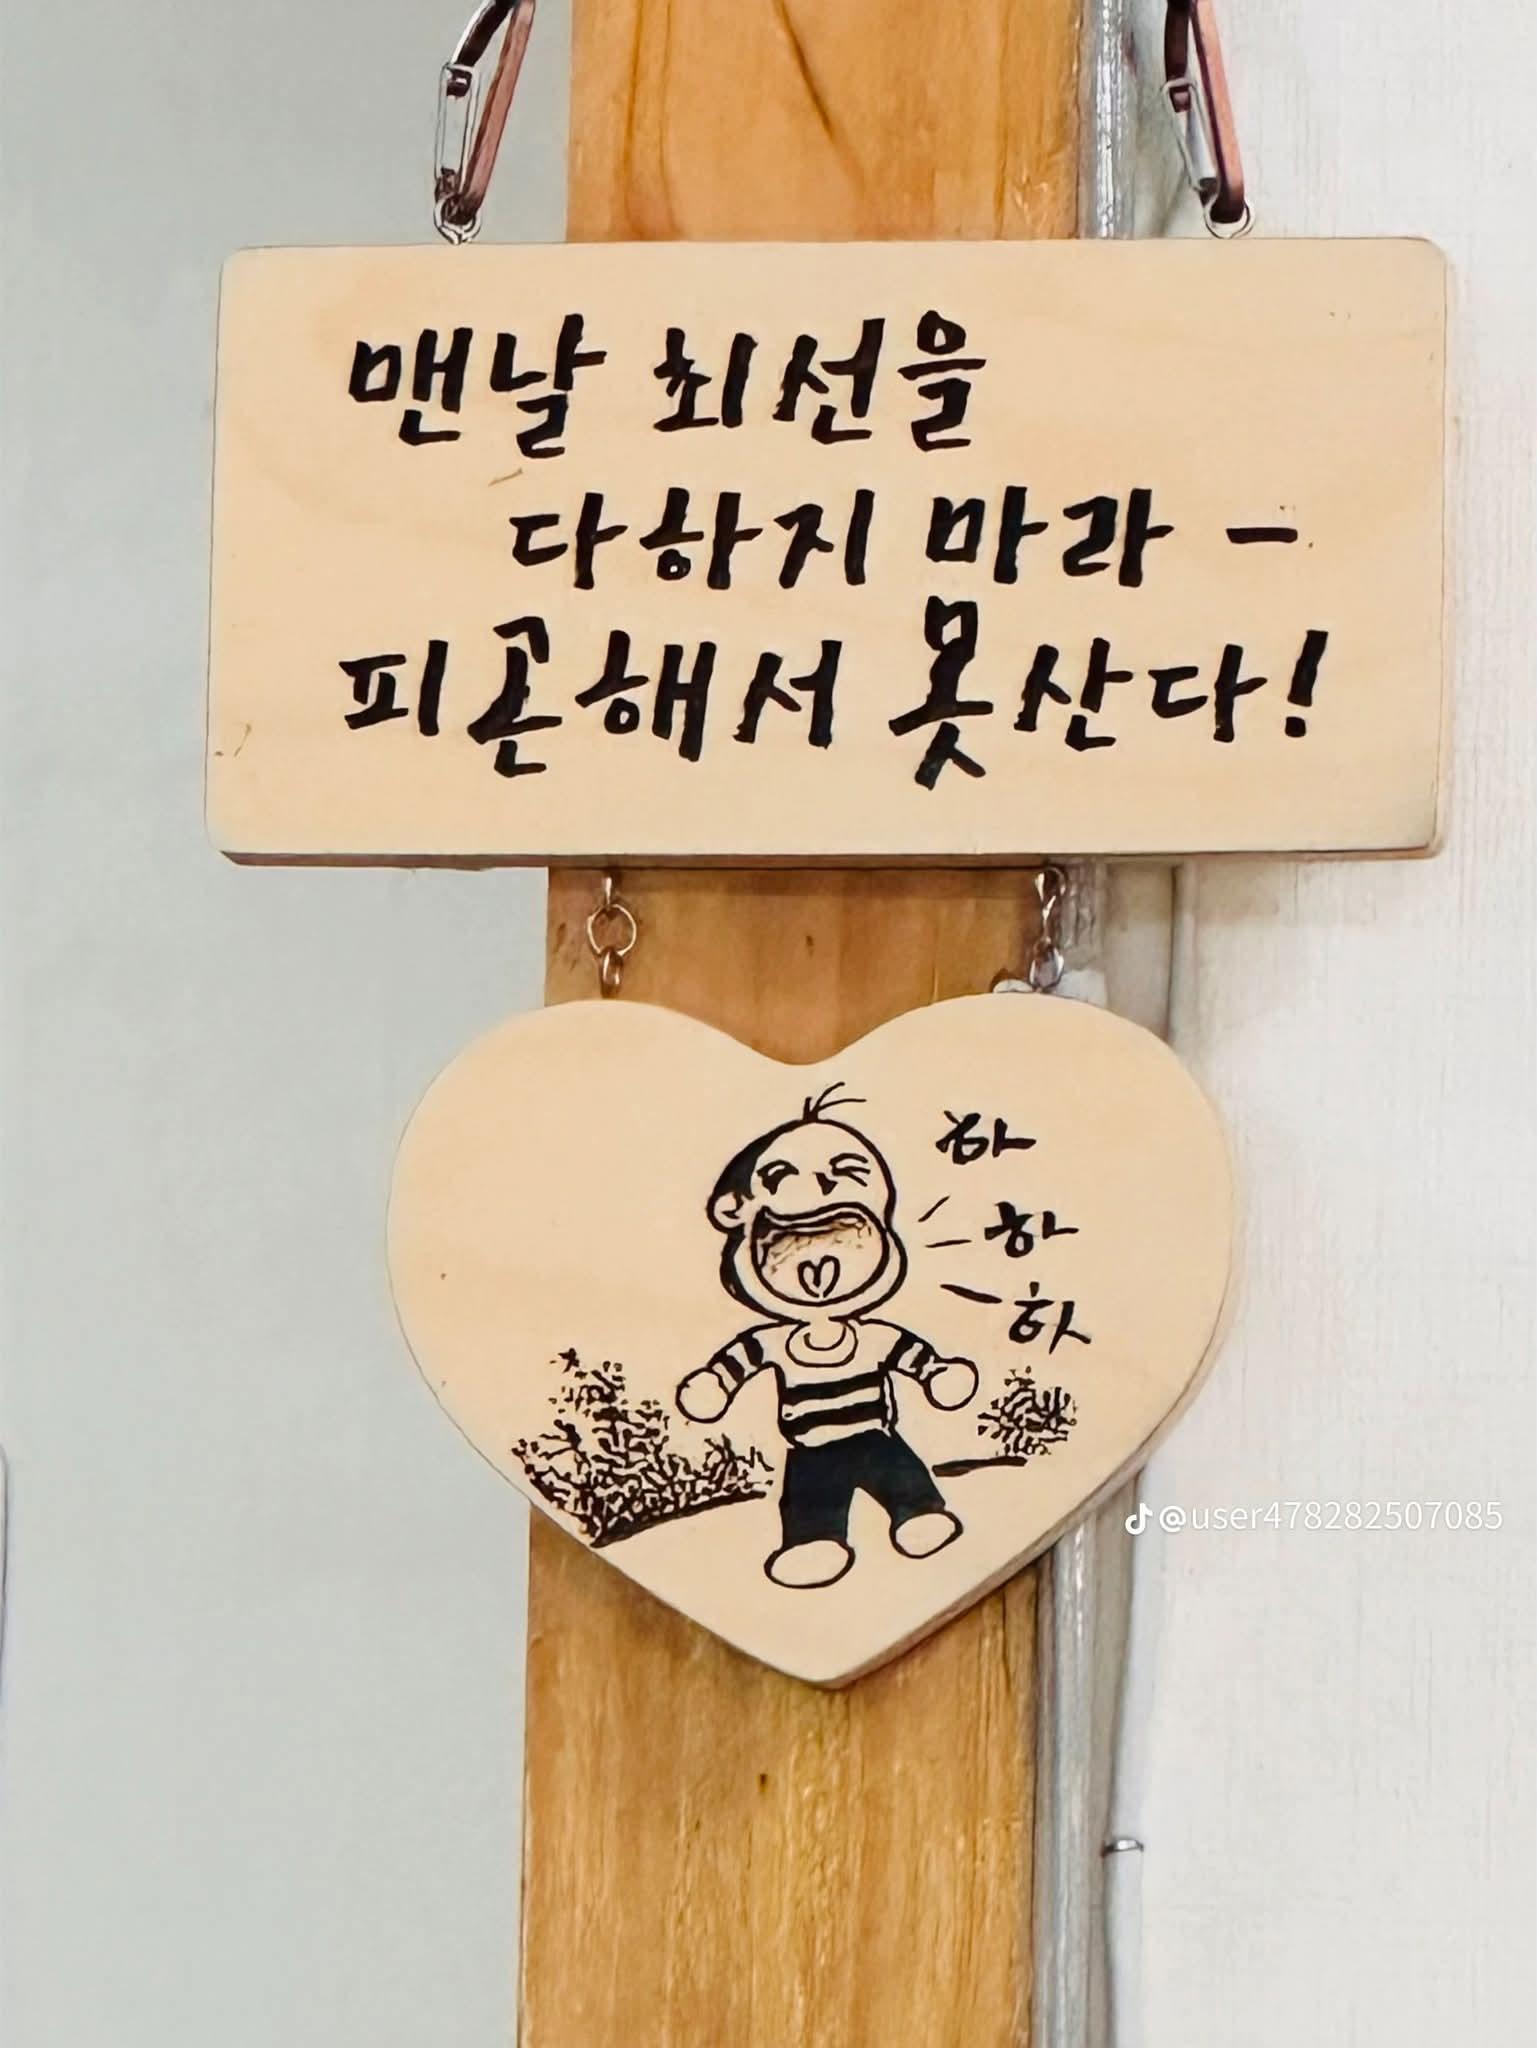 맨날 최선을
다하지 마라 -
피곤해서 못산다!
하
하
하
@user478282507085